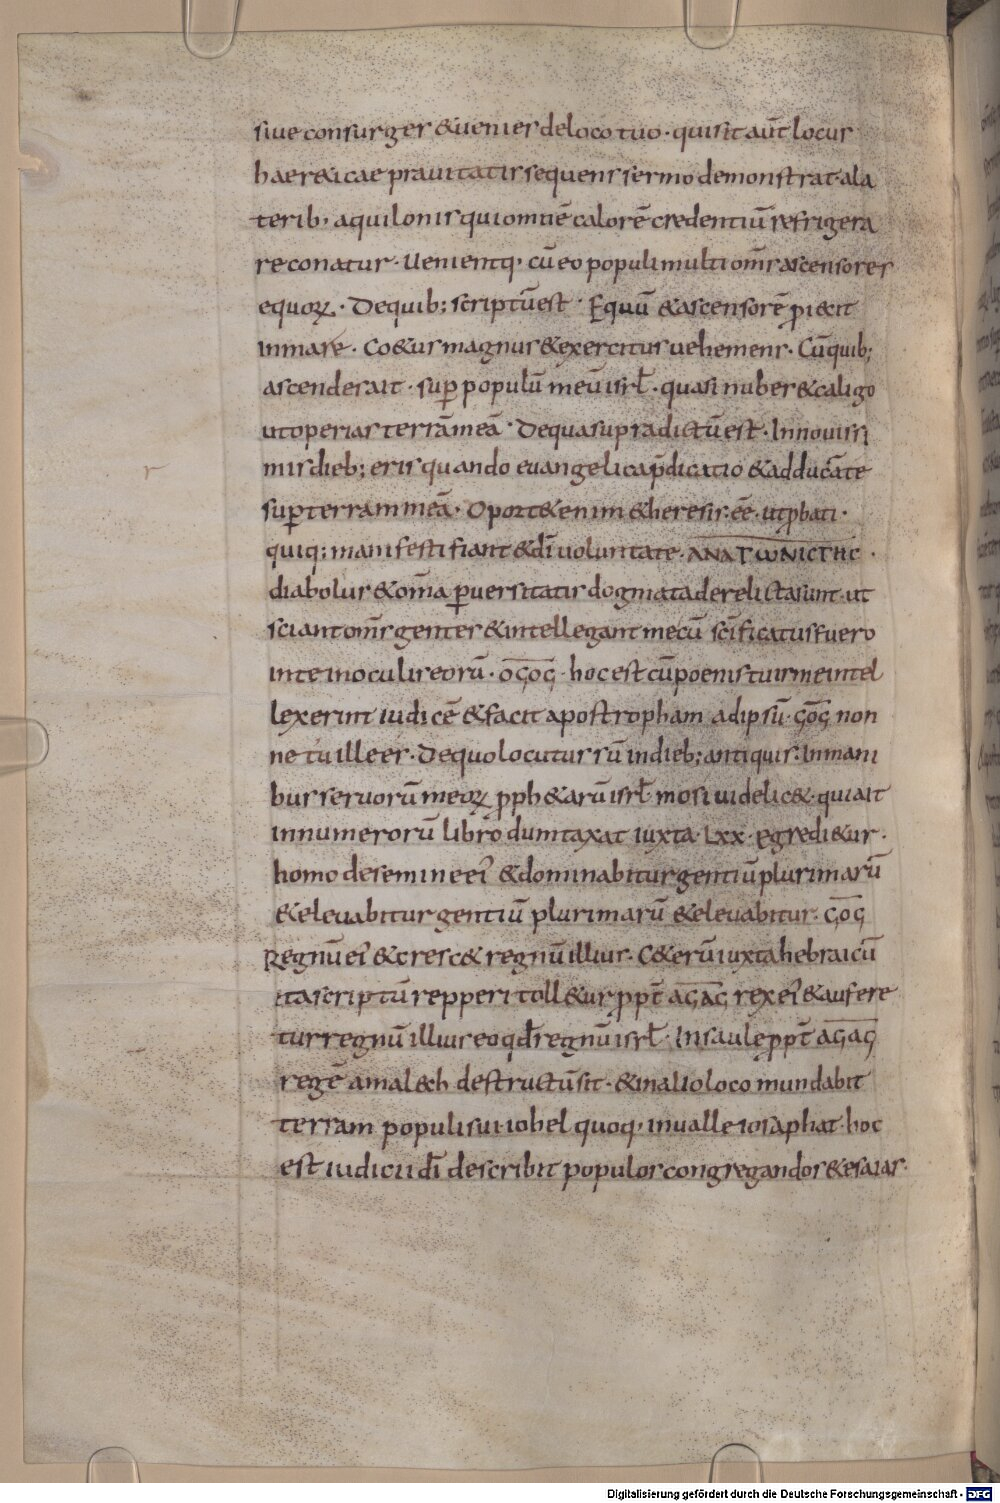 siue consurges &uenies deloco tuo · quisit aūt locus
haer&icae prauitatis sequens sermo demonstrat · ala
terib; aquilonis qui omnē calorē credentiū refrigera
re conatur · Uenientq; cū eo populi multi om̄s ascensores
equoꝝ · De quib; scriptū est · Equū &ascensorē ꝓiecit
inmare · Co&us magnus &exercitus uehemens · Cū quib;
ascenderait · suꝑ populū meū isrl̄ · quasi nubes &caligo
utoperias terrā meā · De qua supra dictū est · In nouissi
mis dieb; eris quando euangelica p̄dicatio &adducā te
suꝑ terram meā · Oport& enim &hereses eē · ut ꝓbati ·
quiq; manifesti fiant &dī uoluntate · ΑΝΑΤΩΝΙCΤΗC ·
diabolus &om̄a ꝑuersitatis dogmata derelicta sunt · ut
sciant om̄s gentes &intellegant mecū sc̄ificatus fuero
inte inoculis eorū · o ḡoḡ · hoc est cū poenis tuis me intel
lexerint iudicē &facit apostropham adipsū · ḡoḡ non
ne tu ille es · De quo locutus sū in dieb; antiquis · In mani
bus seruorū meoꝝ ꝓph&arū isrl̄ mosi uidelic& · qui ait
innumerorū libro dumtaxat iuxta · Lxx · Egredi&ur ·
homo de semine ei' &dominabitur gentiū plurimarū
&eleuabitur gentiū plurimarū &eleuabitur · ḡoḡ
Regnū ei' &cresc& regnū illius · C&erū iuxta hebraicū
ita scriptū repperi toll&ur ꝓpt̄ aḡaḡ rex ei' &aufere
tur regnū illius eo qd̄ regnū isrl̄ · In saule ꝓpt̄ aḡaḡ
regē amalech destructū sit · &inalio loco mundabit
terram populi sui · iohel quoq; inualle iosaphat · hoc
est iudicii dī describit populos congregandos &esaias ·
Digitalisierung gefördert durch die Deutsche Forschungsgemeinschaft - DFG